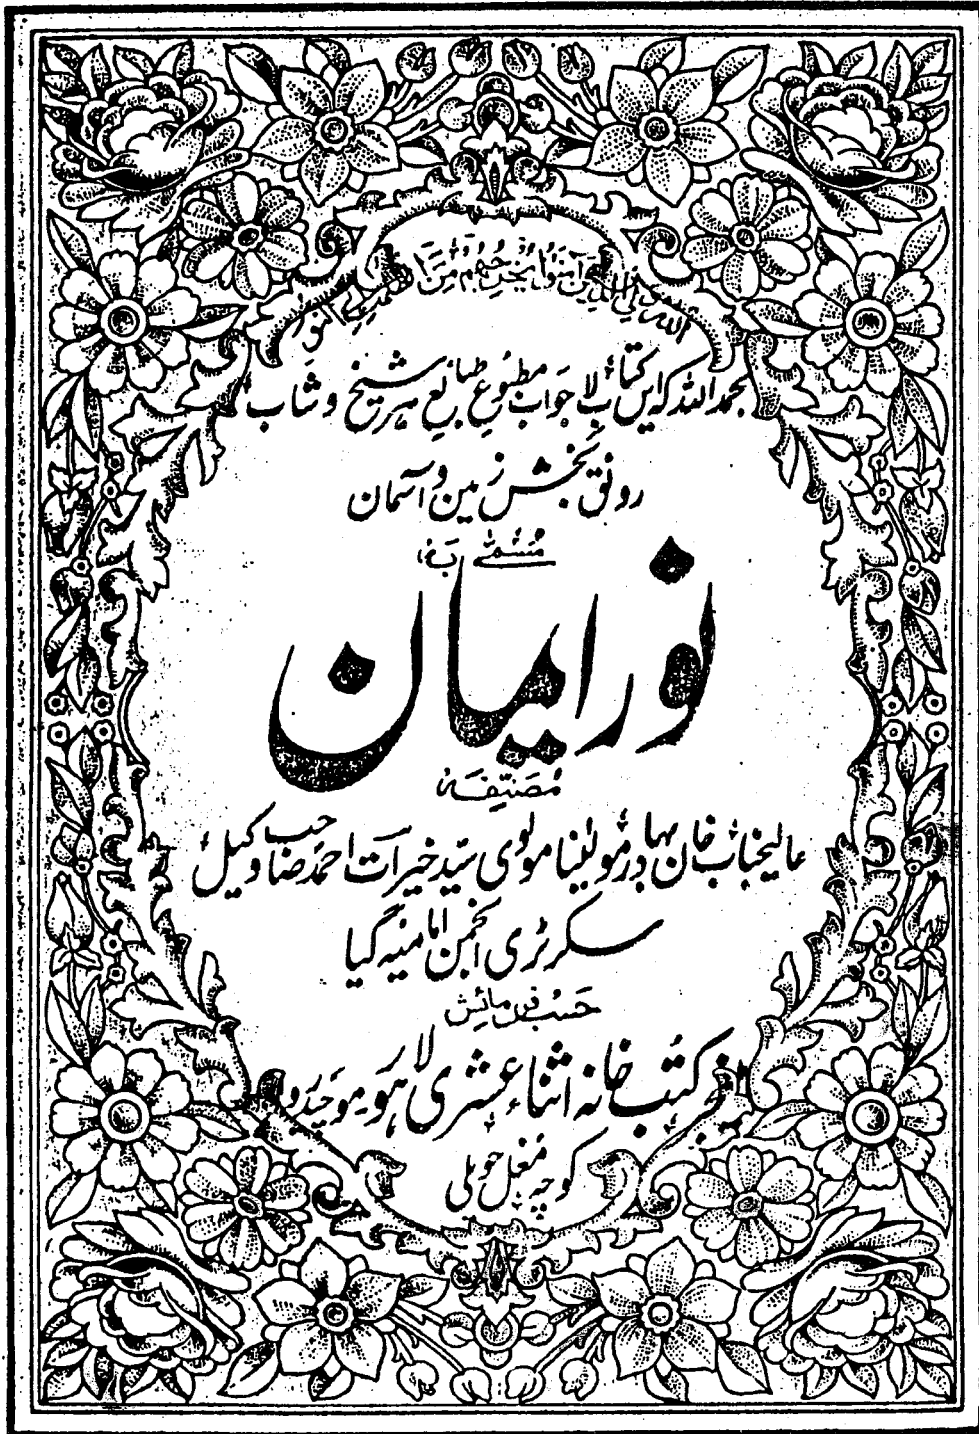 اللہ ولی الذین آمنوا یخرجھم من الظلمت الی النور
بحمد اللہ کہ ایں کتاب لاجواب مطبوع طبائع ہر شیخ و شاب
رونق بخش زمین و آسمان
مسمّٰے بہٖ
نور ایمان
مصنّفہٖ
عالیجناب خان بہادر مولٰینا مولوی سید خیرات احمد صاحب وکیل
سکرٹری انجمن امامیہ گیا
حسب فرمائش
کتب خانہ اثناء عشری لاہور موچیدروازہ
کوچہ مغل حویلی